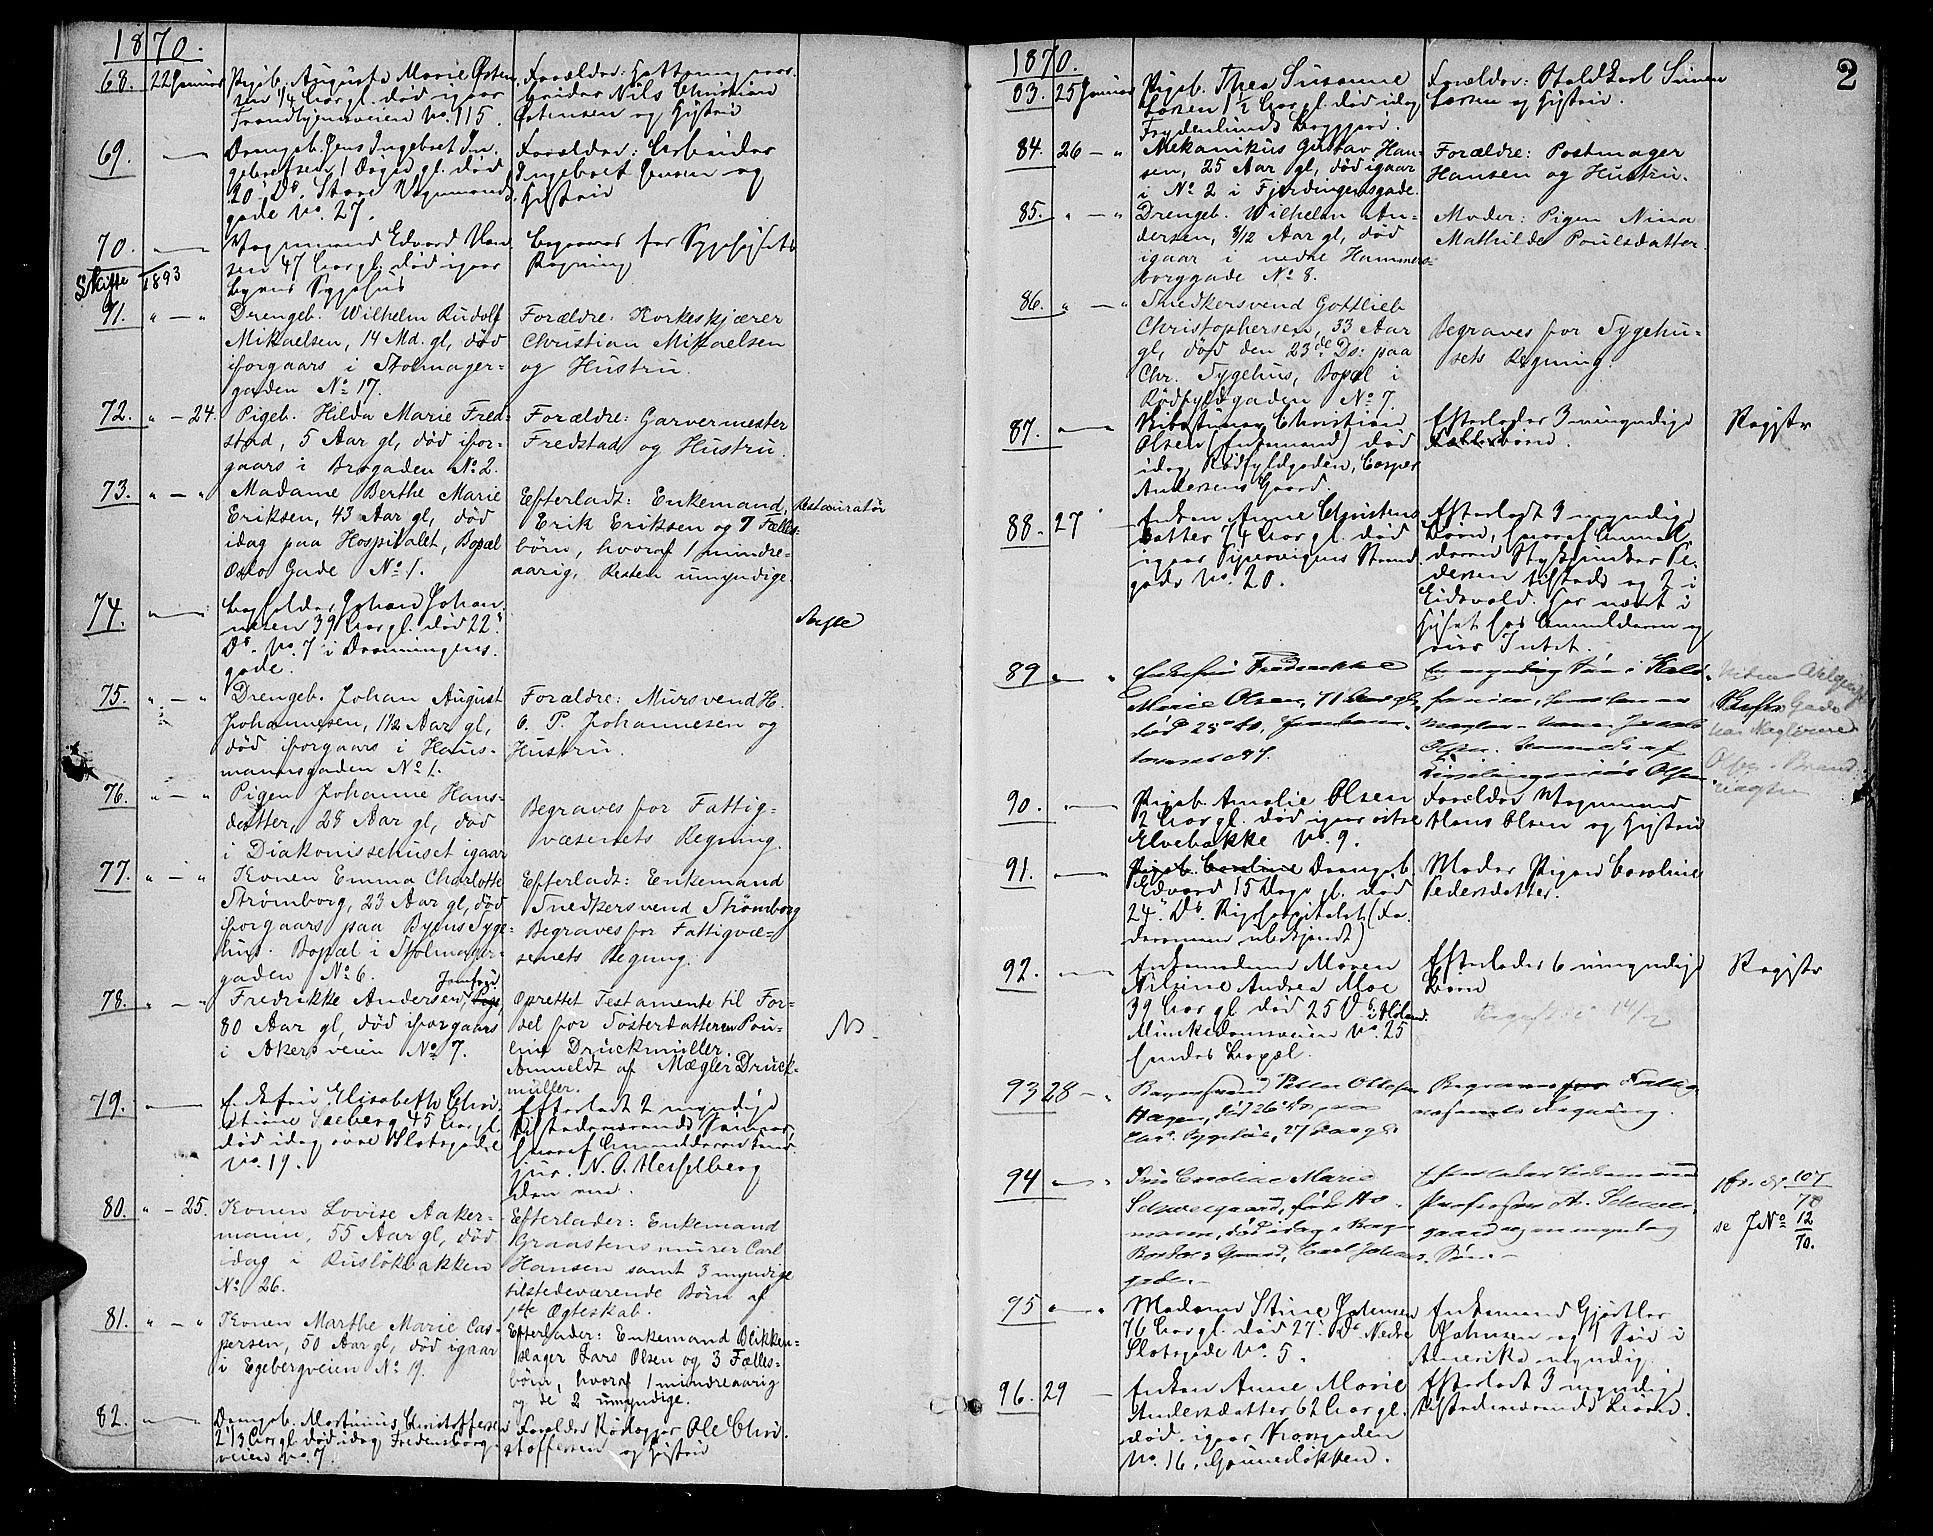 1870.
68. 22 Januar Pigeb. Augusta Marie Østen-
sen 1/4 Aar gl. død igaar
Trondhjemsveien No. 115.
Forældre:
beider Nils Christian
Østensen og Hustru
69. Drengeb. Jens Ingebret In-
gebretsen 1 Døgn gl. død
20 Ds. Store Vognmands-
gade No. 27.
Forældre: Arbeider
Ingebret Jensen og
Hustru
70. Vognmand Edvard Han-
sen 47 Aar gl. død igaar
Byens Sygehus
Begraves for Sygehusets
Regning
Skifte 1893
71. " — " Drengeb. Wilhelm Rudolf
Mikaelsen, 14 Md. gl, død
iforgaars i Stolmager-
gaden No 17.
Forældre: Korkeskjærer
Christian Mikaelsen
og Hustru.
72. " — 24. Pigeb. Hilda Marie Fred-
stad, 5 Aar gl, død ifor-
gaars i Brogaden No 2.
Forældre: Garvermester
Fredstad og Hustru.
73. " — " Madame Berthe Marie
Eriksen, 43 Aar gl, død
idag paa Hospitalet, Bopæl
Oslo Gade No 1.
Efterladt: Enkemand,
Erik Eriksen og 7 Fælles-
børn, hvoraf 1 mindre-
aarig, Resten umyndige
Restauratør
74. Johan Johan-
nesen 39 Aar gl. død 22
Ds. No. 7 i Dronningens-
gade.
Skifte
75. " — " Drengeb. Johan August
Johannesen, 1 1/2 Aar gl,
død iforgaars i Haus-
mannsgaden No 1.
Forældre: Mursvend H.
O. P. Johannesen og
Hustru.
76. " — " Pigen Johanne Hans-
datter, 28 Aar gl, død
i Diakonissehuset igaar
Begraves for Fattig-
væsenets Regning.
77. " — " Konen Emma Charlotte
Strømborg, 23 Aar gl, død
iforgaars paa Byens Syge-
hus. Bopæl i Stolmager-
gaden No 6.
Efterladt: Enkemand
Snedkersvend Strømborg
Begraves for Fattigvæ-
senets Regning.
78. " — " Jomfru
Fredrikke Andersen, Pige,
80 Aar gl, død iforgaars
i Akersveien No 7.
Oprettet Testamente til For-
del for Søsterdatteren Pou-
line Druckmüller.
Anmeldt af Mægler Druck-
müller.
79. Enkefru Elisabeth Chri-
stiane Seeberg 45 Aar gl
død idag øvre Slotsgade
No. 19.
Efterladt 2 myndige
tilstedeværende Sønner,
hvoraf Anmelderen Cand.
jur. N. A. Hesselberg
den ene.
80. " — 25. Konen Lovise Aaker-
mann, 55 Aar gl, død
idag i Ruseløkbakken
No 26.
Efterlader: Enkemand
Graastensmurer Carl
Hansen samt 3 myndige
tilstedeværende Børn af
1ste Ægteskab.
81. " — " Konen Marthe Marie Cas-
persen, 50 Aar gl, død igaar
i Egebergveien No 19.
Efterlader: Enkemand Blikken-
slager Lars Olsen og 3 Fælles-
børn, hvoraf 1 mindreaarig
og de 2 umyndige.
82. Drengeb. Martinius Christoffersen
2 1/3 Aar gl død idag Fredensborg-
veien No. 7.
Forældre Ole Chri-
stoffersen og Hustru
1870.
2
83. 25 Januar Pigeb. Thea Susanne
Larsen 1 1/2 Aar gl. død idag
Frydenlunds
Forældre:
Larsen og Hustru.
84. 26 — " Mekanikus Gustav Han-
sen, 25 Aar gl, død igaar
i No 2 i Fjerdingensgade.
Forældre: Postmager
Hansen og Hustru.
85. " — " Drengeb. Wilhelm An-
dersen, 8/12 Aar gl, død
igaar i nedre Hammers-
borggade No 8.
Moder: Pigen Nina
Mathilde Poulsdatter.
86. " — " Snedkersvend Gottlieb
Christophersen, 33 Aar
gl, død den 23de Ds: paa
Chr. Sygehus, Bopæl i
Rødfyldgaden No 7.
Begraves for Sygehu-
sets Regning.
87. Christian
Olsen (Enkemand) død
idag Rødfyldgaden, Casper
Andersens Gaard.
Efterlader 3 umyndige
Fællesbørn.
Registr
88. 27 Enken Anne Christens-
datter 74 Aar gl. død
igaar Pipervigens Strand-
gade No. 20.
Efterladt 3 myndige
Børn, hvoraf Anmel-
deren Pe-
dersen tilstede og 2 i
Eidsvold. Har været i
Huset hos Anmelderen og
eier Intet.
89 Enkefru Fredrikke
Marie Olsen, 71 Aar gl,
død 25 ds,
Olsen.
Olsen
Skifte
90. Pigeb. Amalie Olsen
2 Aar gl. død igaar østre
Elvebakke No. 9.
Forældre Vognmand
Hans Olsen og Hustru
91. Pigeb. Caroline Drengeb.
Edvard 15 Dage gl. død
24 Ds. Rigshospitalet (Fa-
derens navn ubekjendt)
Moder Pigen Caroline
Pedersdatter.
92. Enkemadame Maren
Nilsine Andrea Moe
39 Aar gl død 25 Ds.
Munkedamsveien No. 25
hendes Bopæl.
Efterlader 6 umyndige
Børn
Registr
93 28 — " Peter Ottesen
Hagen, død 26 ds. paa
Sygehus, 27 Aar gl.
Begraves for Fattig-
væsenets Regning.
94 Fru Caroline Marie
Schweigaard, født Ho-
mann, død idag
Gaard, Carl Johans
gade.
Efterlader Enkemand
Professor A. Schwei-
gaard og en myndig
Søn.
107
70
se J No 12
70.
95 Madame Stine Johnsen
76 Aar gl. død 27. Ds Nedre
Slotsgade No. 5.
Enkemand Gjørtler
Johnsen og 1 Søn i
Amerika myndig.
96. 29 Enken Anne Marie
Andersdatter 62 Aar gl.
død igaar
No. 16. Grünerløkken.
Efterladt 3 myndige
tilstedeværende Børn.